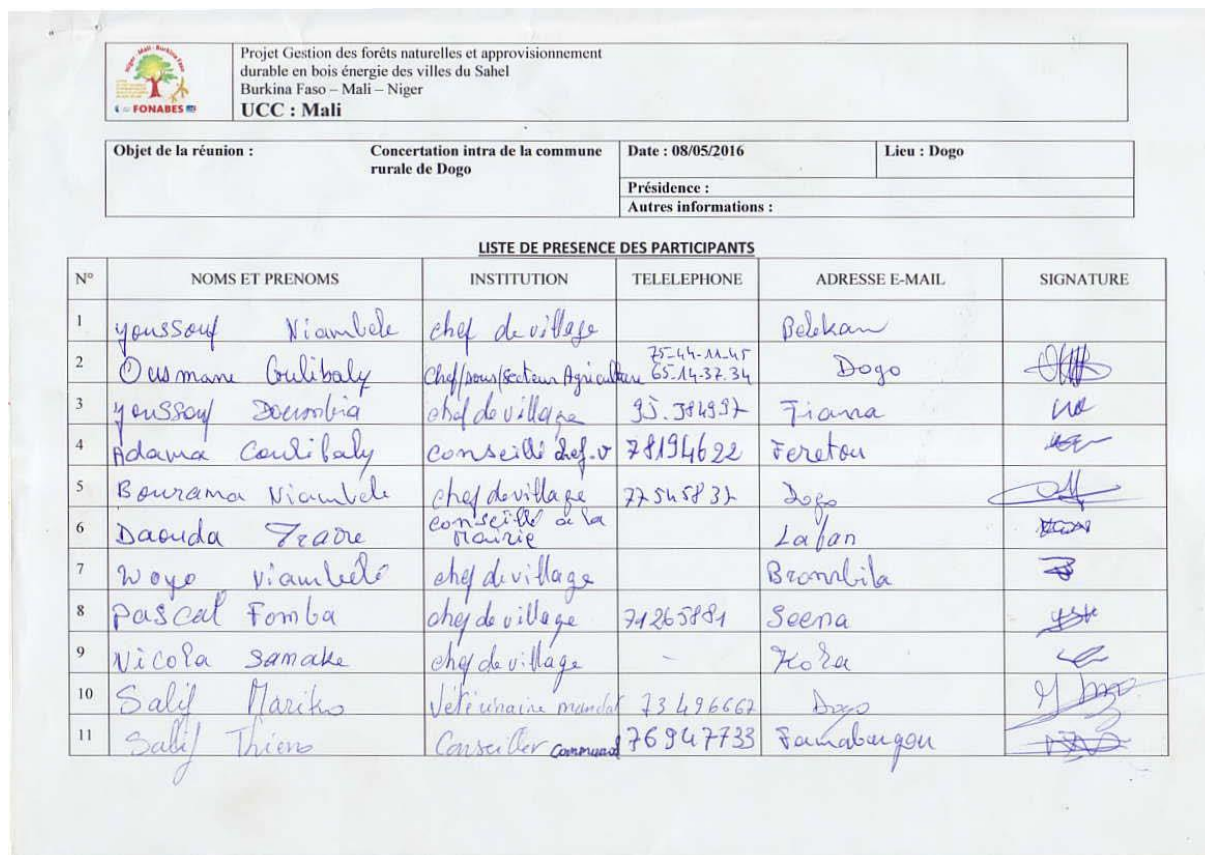 Niger - Mali - Burkina Faso
FONABES
Projet Gestion des forêts naturelles et approvisionnement
durable en bois énergie des villes du Sahel
Burkina Faso – Mali – Niger
UCC : Mali
Objet de la réunion : Concertation intra de la commune rurale de Dogo Date : 08/05/2016 Lieu : Dogo
Présidence :
Autres informations :
LISTE DE PRESENCE DES PARTICIPANTS
N° NOMS ET PRENOMS INSTITUTION TELELEPHONE ADRESSE E-MAIL SIGNATURE
1 Youssouf Niambele chef de village Belekan
2 Ousmane Coulibaly Chef/sous/secteur Agriculture 75-44-11-45 65.14.37.34 Dogo
3 Youssouf Doumbia chef de village Tiana
4 Adama Coulibaly conseillé chef.v 78194622 Feretou
5 Bourama Niambele chef de village Dogo
6 Daouda Traore conseillé à la Mairie Lafan
7 Woyo Niambelé chef de village
8 Pascal Fomba chef de village 71265881 Seena
9 Nicola Samake chef de village - Kola
10 Salif Mariko Vétérinaire mandat 73496662 Dogo
11 Salif Thiero Conseiller communal 76947733